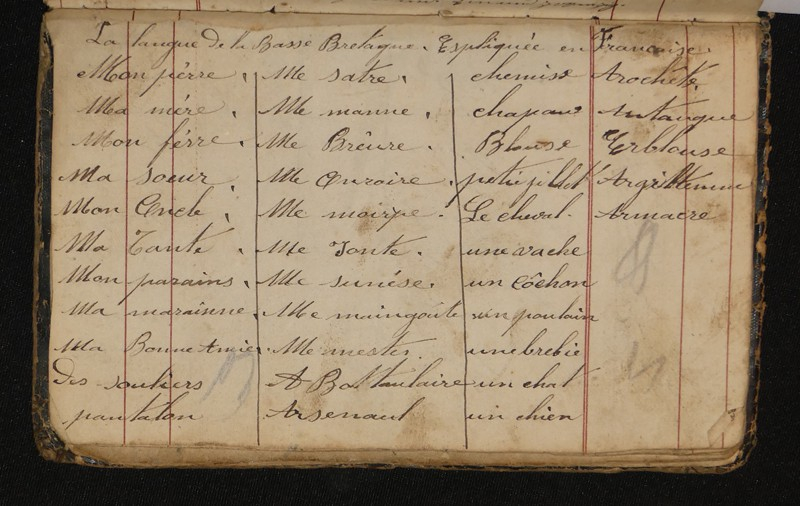 La langue De la Basse Bretagne. Espliquée en Francaise.
Mon pérre, Me satre, chemise Arochets.
Ma mére, Me manne, chapau Antauque
Mon férre. Me Breure. Blouse Erblouse
Ma soeur Me Onroire, petit gillet Argillemme
Mon Oncle, Me moirpe. Le cheval. Armacre
Ma Tante. Me Tonte. une vache
Mon parains. Me sunése. un côchon
Ma marainne. Me maingoute un poulain
Ma Bonne Amie. Me mestes. une brebie
Des souliers A Bottaulaire un chat
pantalon Arsenaul un chien